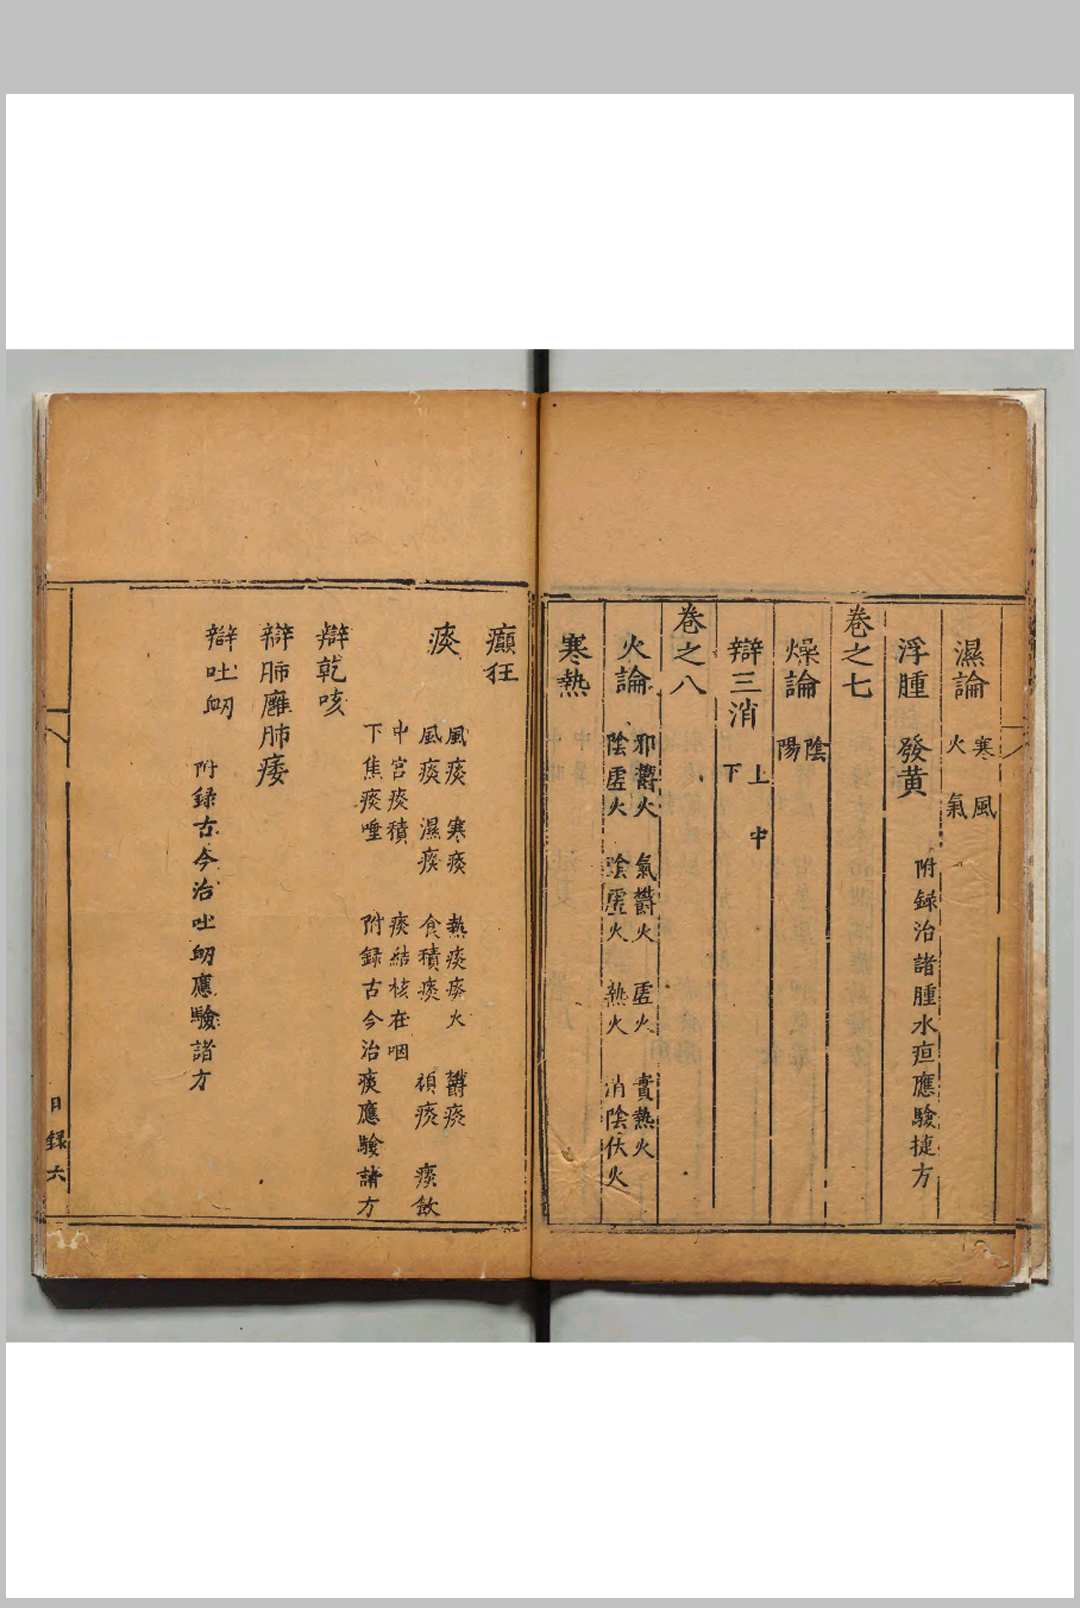 濕論 寒 風
火 氣
浮腫 發黄 附録治諸腫水疸應驗捷方
卷之七
燥論 陰
陽
辯三消 上 中
下
卷之八
火論 邪欝火 氣欝火 虚火 實熱火
陰虚火 陰虚火 熱火 消陰伏火
寒熱
癲狂
痰 風痰 寒痰 熱痰痰火 欝痰
風痰 濕痰 食積痰 頑痰 痰飲
中宮痰積 痰結核在咽
下焦痰唾 附録古今治痰應驗諸方
辯乾咳
辯肺癰肺痿
辯吐衂 附録古今治吐衂應驗諸方
目録 六